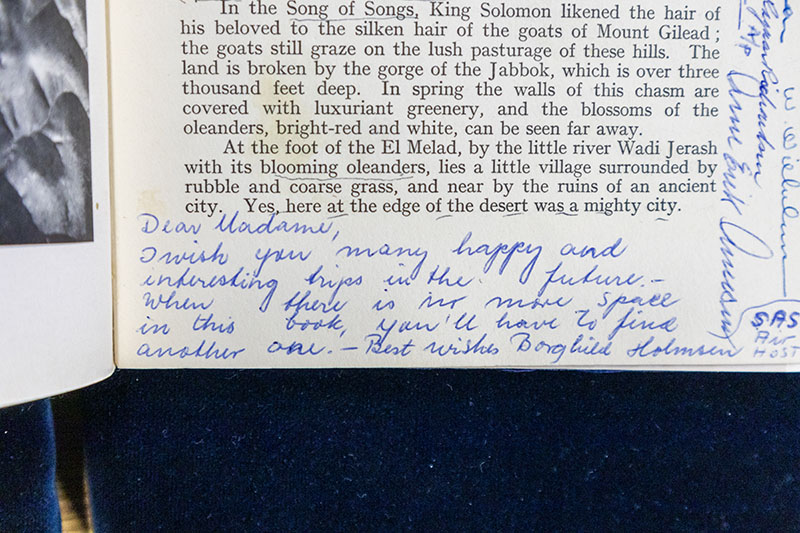 In the Song of Songs, King Solomon likened the hair of
his beloved to the silken hair of the goats of Mount Gilead;
the goats still graze on the lush pasturage of these hills. The
land is broken by the gorge of the Jabbok, which is over three
thousand feet deep. In spring the walls of this chasm are
covered with luxuriant greenery, and the blossoms of the
oleanders, bright-red and white, can be seen far away.
At the foot of the El Melad, by the little river Wadi Jerash
with its blooming oleanders, lies a little village surrounded by
rubble and coarse grass, and near by the ruins of an ancient
city. Yes, here at the edge of the desert was a mighty city.
Dear Madame,
I wish you many happy and
interesting trips in the future.-
When there is no more space
in this book, you'll have to find
another one. - Best wishes Borghild Holmsen
SAS
HOST